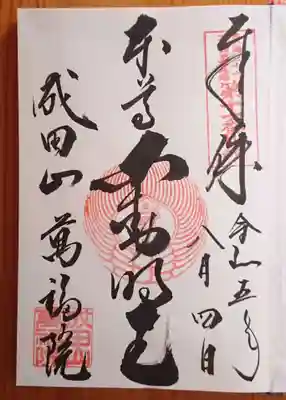 奉拝
令和五年
八月四日
本尊 不動明王
成田山 萬福院